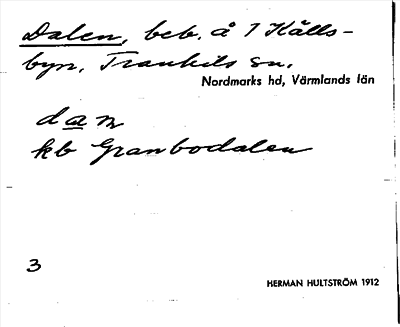 Dalen, beb. å 1 Källs-
byn, Trankils sn.
Nordmarks hd, Värmlands län
dan
kb Granbodalen
3
HERMAN HULTSTRÖM 1912